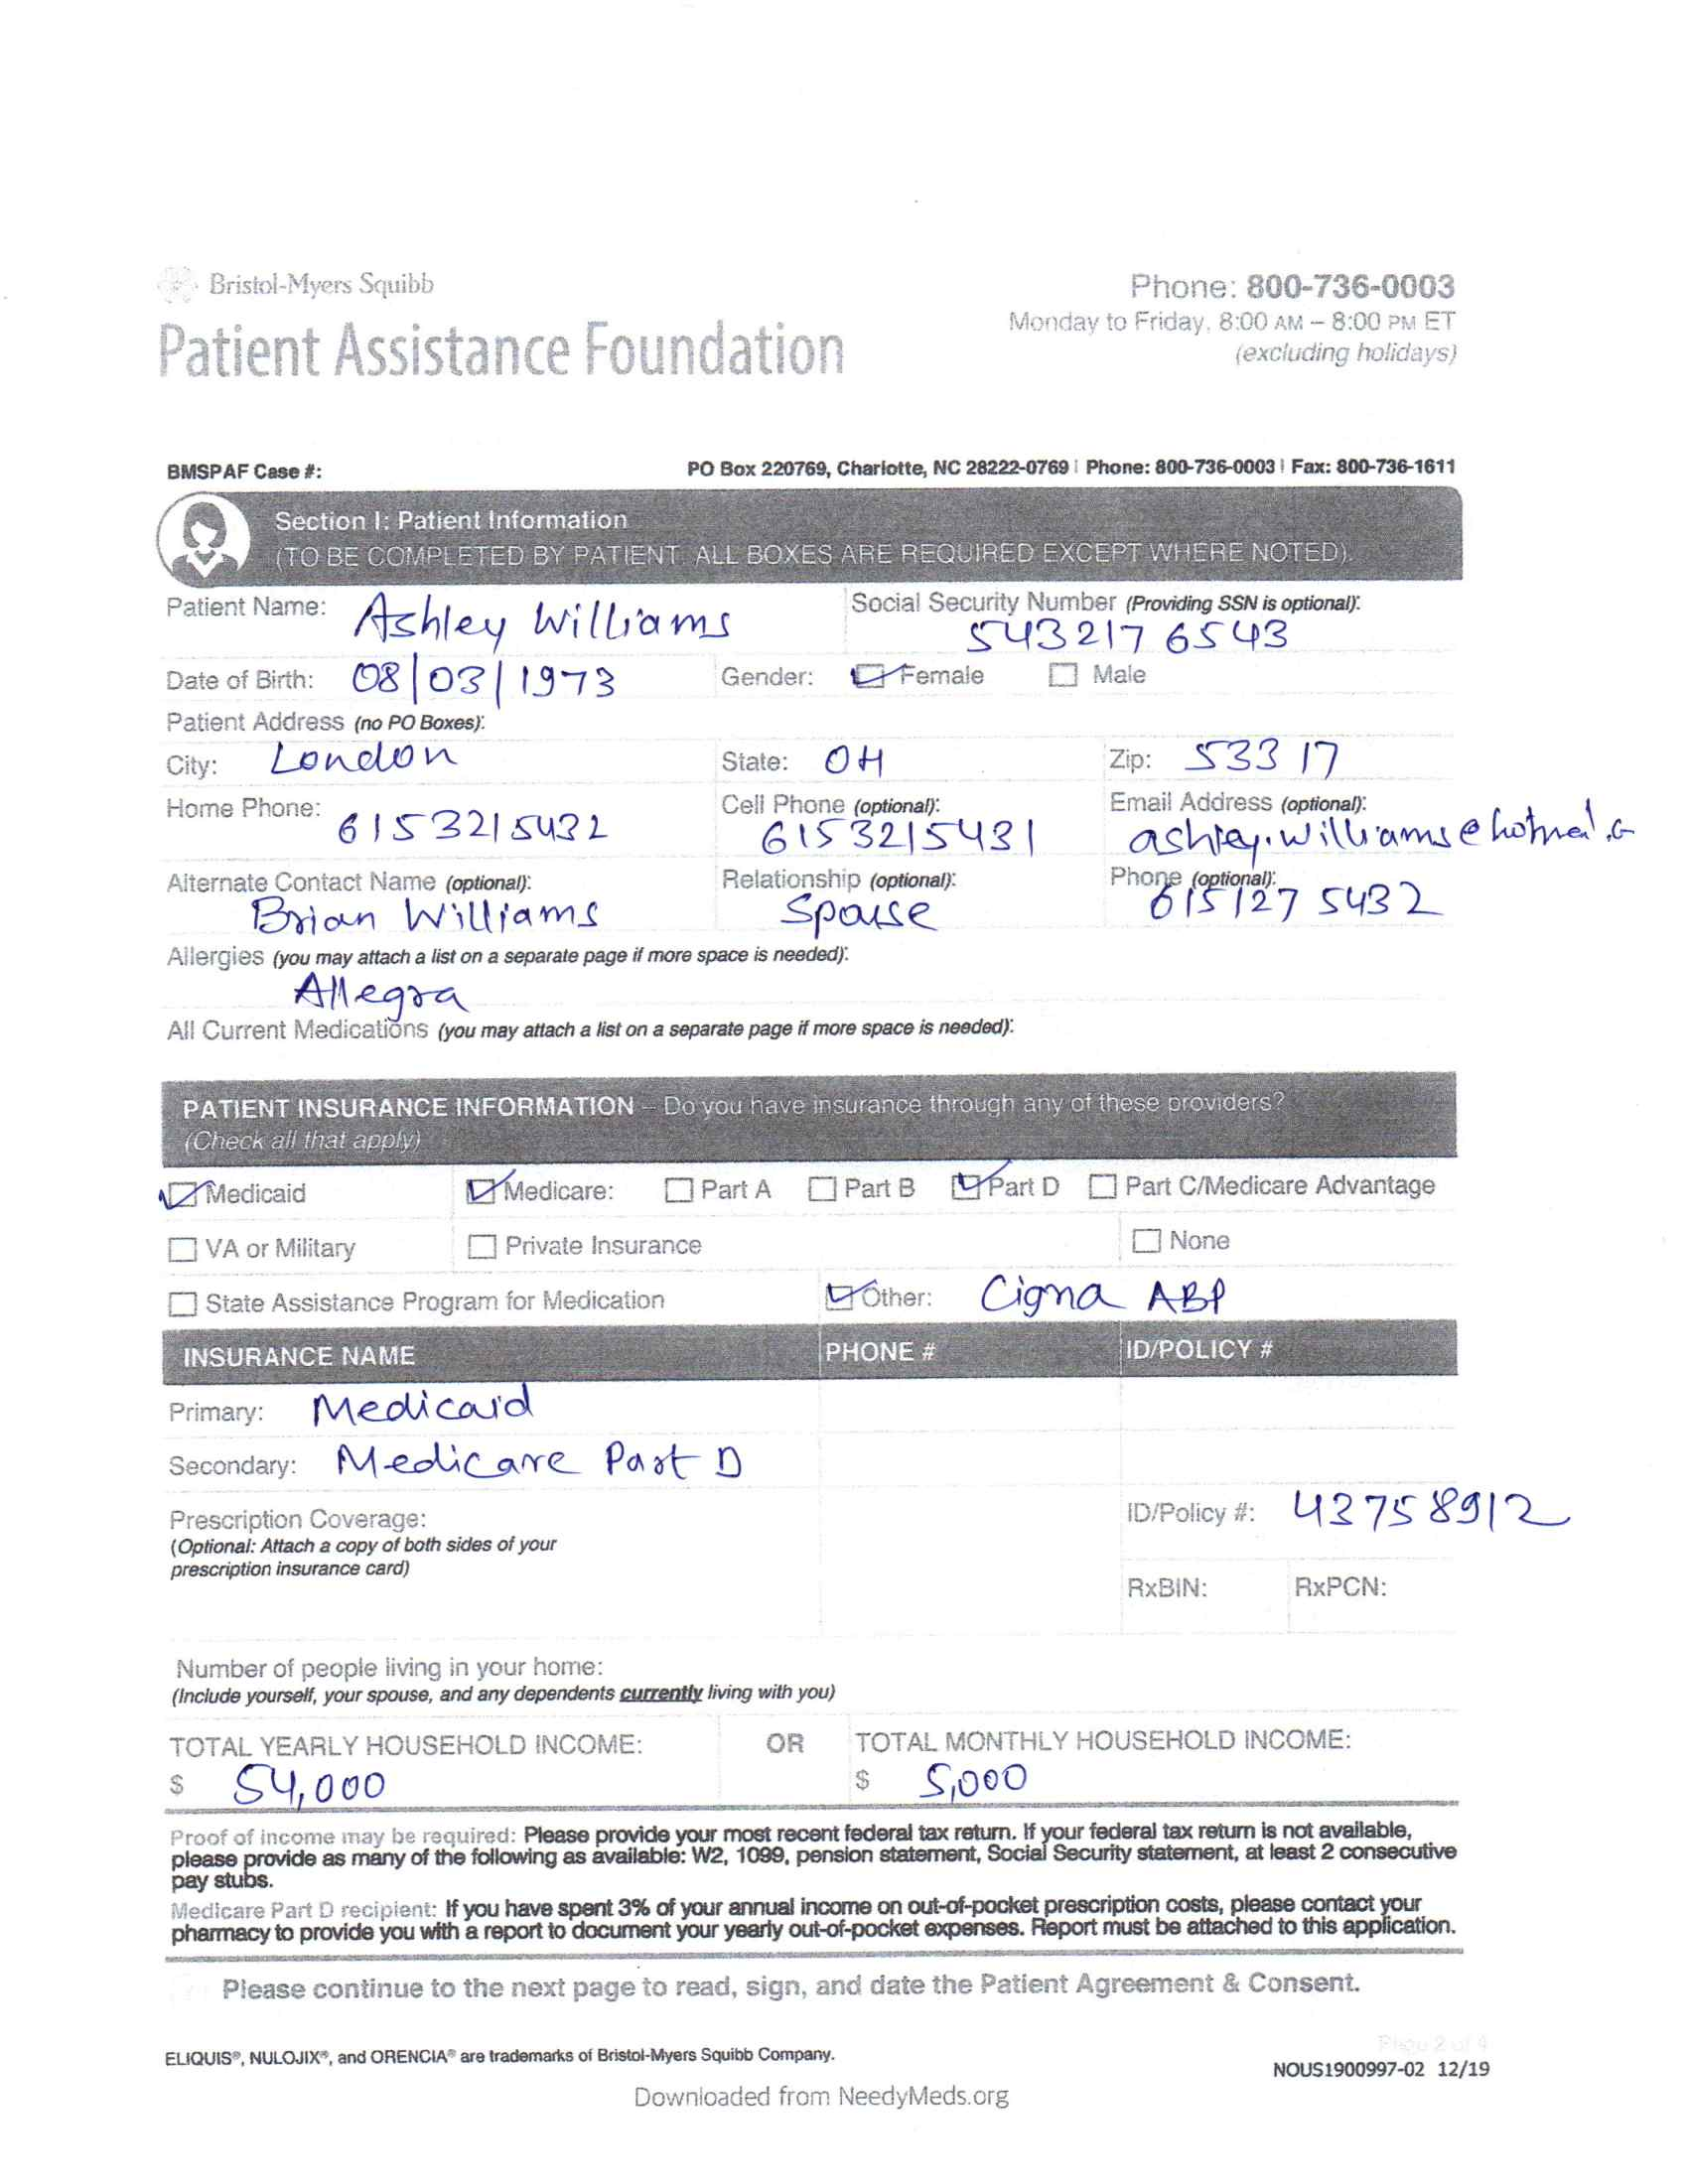 Bristol-Myers Squibb
Patient Assistance Foundation
Phone: 800-736-0003
Monday to Friday, 8:00 AM – 8:00 PM ET
(excluding holidays)
BMSPAF Case #:
PO Box 220769, Charlotte, NC 28222-0769 | Phone: 800-736-0003 | Fax: 800-736-1611
Section I: Patient Information
(TO BE COMPLETED BY PATIENT. ALL BOXES ARE REQUIRED EXCEPT WHERE NOTED).
Patient Name: Ashley Williams
Social Security Number (Providing SSN is optional):
543217 6543
Date of Birth: 08/03/1973 Gender: Female Male
Patient Address (no PO Boxes):
City: London State: OH Zip: 53317
Home Phone: 6153215432
Cell Phone (optional): 6153215431
Email Address (optional):
Alternate Contact Name (optional): Brian Williams
Relationship (optional): Spouse
Phone (optional): 6151275432
Allergies (you may attach a list on a separate page if more space is needed):
Allegra
All Current Medications (you may attach a list on a separate page if more space is needed):
PATIENT INSURANCE INFORMATION – Do you have insurance through any of these providers?
(Check all that apply)
Medicaid Medicare: Part A Part B Part D Part C/Medicare Advantage
VA or Military Private Insurance None
State Assistance Program for Medication Other: Cigna ABP
INSURANCE NAME PHONE # ID/POLICY #
Primary: Medicaid
Secondary: Medicare Part D
Prescription Coverage:
(Optional: Attach a copy of both sides of your
prescription insurance card)
ID/Policy #: 43758912
RxBIN: RxPCN:
Number of people living in your home:
(Include yourself, your spouse, and any dependents currently living with you)
TOTAL YEARLY HOUSEHOLD INCOME: OR TOTAL MONTHLY HOUSEHOLD INCOME:
$ 54,000 $ 5,000
Proof of income may be required: Please provide your most recent federal tax return. If your federal tax return is not available,
please provide as many of the following as available: W2, 1099, pension statement, Social Security statement, at least 2 consecutive
pay stubs.
Medicare Part D recipient: If you have spent 3% of your annual income on out-of-pocket prescription costs, please contact your
pharmacy to provide you with a report to document your yearly out-of-pocket expenses. Report must be attached to this application.
Please continue to the next page to read, sign, and date the Patient Agreement & Consent.
Page 2 of 4
ELIQUIS®, NULOJIX®, and ORENCIA® are trademarks of Bristol-Myers Squibb Company.
NOUS1900997-02 12/19
Downloaded from NeedyMeds.org